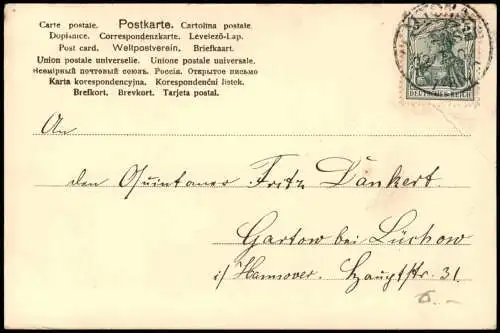 Carte postale. Postkarte. Cartolina postale.
Dopisnice. Correspondenzkarte. Levelező-Lap.
Post card. Weltpostverein. Briefkaart.
Union postale universelle. Unione postale universale.
Всемірный почтовый союзъ. Россія. Открытое письмо
Karta korespondencyjna. Korespondenční listek.
Brefkort. Brevkort. Tarjeta postal.
DEUTSCHES REICH
An
den Quintaner Fritz Dankert.
Gartow bei Lüchow
i/ Hannover. Hauptstr. 31.
6.-